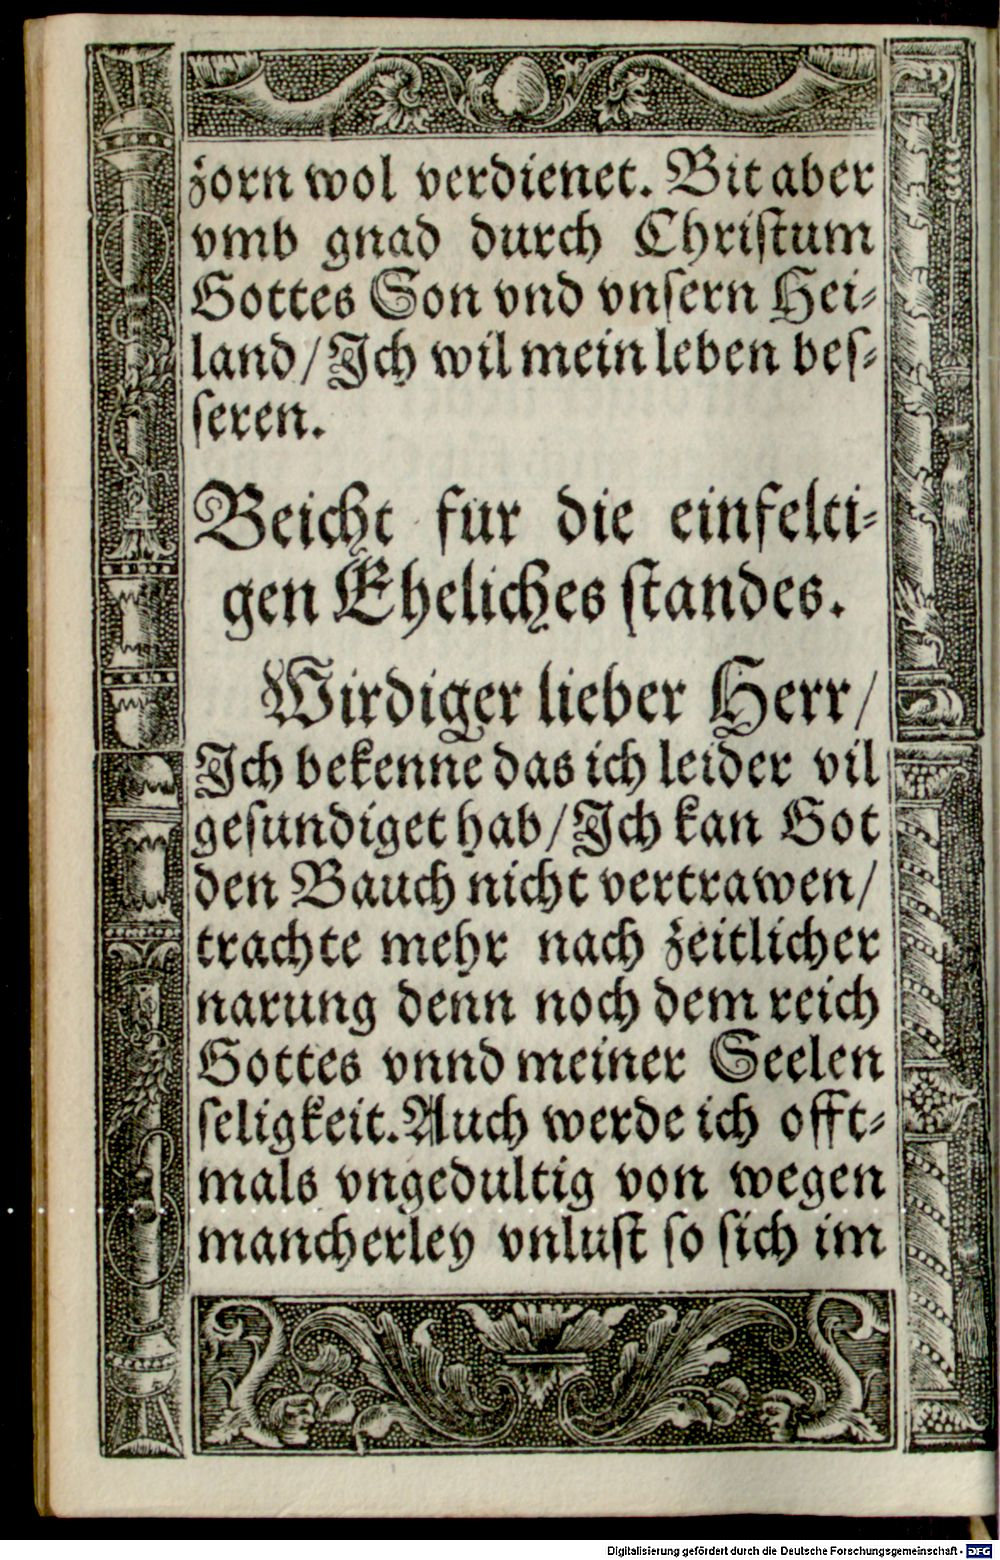 zorn wol verdienet. Bit aber
vmb gnad durch Christum
Gottes Son vnd vnsern Hei-
land/Ich wil mein leben bes-
seren.
Beicht fur die einfelti-
gen Eheliches standes.
Wirdiger lieber Herr/
Ich bekenne das ich leider vil
gesundiget hab/Ich kan Got
den Bauch nicht vertrawen/
trachte mehr nach zeitlicher
narung denn noch dem reich
Gottes vnnd meiner Seelen
seligkeit. Auch werde ich offt-
mals vngedultig von wegen
mancherley vnlust so sich im
Digitalisierung gefördert durch die Deutsche Forschungsgemeinschaft - DFG